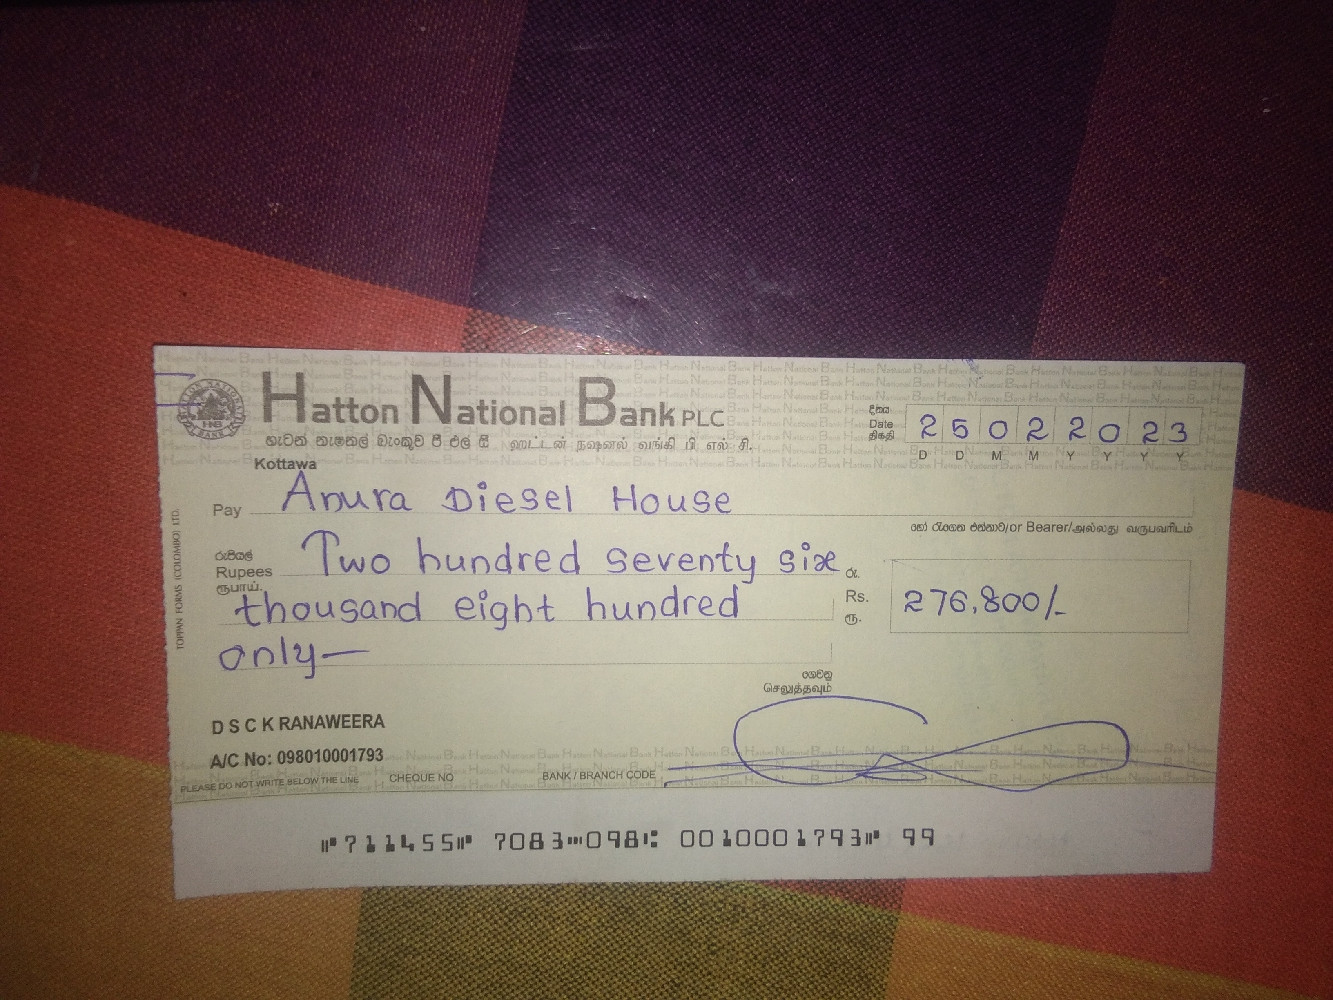 Hatton National Bank PLC
හැටන් නැෂනල් බැංකුව පී එල් සී ஹட்டன் நஷனல் வங்கி பி எல் சி.
Kottawa
දිනය
Date
திகதி
2 5 0 2 2 0 2 3
D D M M Y Y Y Y
Pay Anura Diesel House
හෝ රැගෙන එන්නාට/or Bearer/அல்லது வருபவரிடம்
රුපියල්
Rupees Two hundred seventy six
ரூபாய்.
thousand eight hundred
only—
රු.
Rs. 276,800/-
ரூ.
ගෙවනු
செலுத்தவும்
D S C K RANAWEERA
A/C No: 098010001793
PLEASE DO NOT WRITE BELOW THE LINE CHEQUE NO BANK / BRANCH CODE
⑈711455⑈ 7083⑉098⑆ 0010001793⑈ 99
TOPPAN FORMS (COLOMBO) LTD.
HATTON NATIONAL BANK
HNB